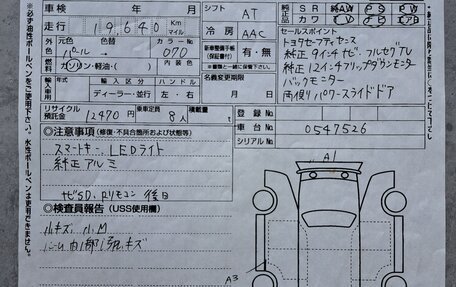 車検 年 月
シフト AT
純正品 SR AW PS PW
品 カワ TV ナビ エアB
走行 19,640 Km マイル
冷房 AAC
セールスポイント
トヨタセーフティセンス
純正9インチナビ フルセグTV
純正12インチフリップダウンモニター
バックモニター
両側パワースライドドア
外装 元色 パール 色替 カラーNo 070
新車整備手帳(保証書付) 有・無
燃料 ガソリン・軽油・( )
輸入車 輸入区分 ハンドル
ディーラー・並行 左・右
名義変更期限
月 日
リサイクル預託金 12470 円
乗車定員 8人
積載量
登録No
車台No 0547526
シリアルNo
◎注意事項(修復・不具合箇所および状態等)
スマートキー、LEDライト
純正アルミ
ナビSD、Rリモコン 後日
◎検査員報告(USS使用欄)
小キズ 小M
キズ
A1
A3
※必ず油性ボールペンをご使用下さい。水性ボールペンは使用できません。